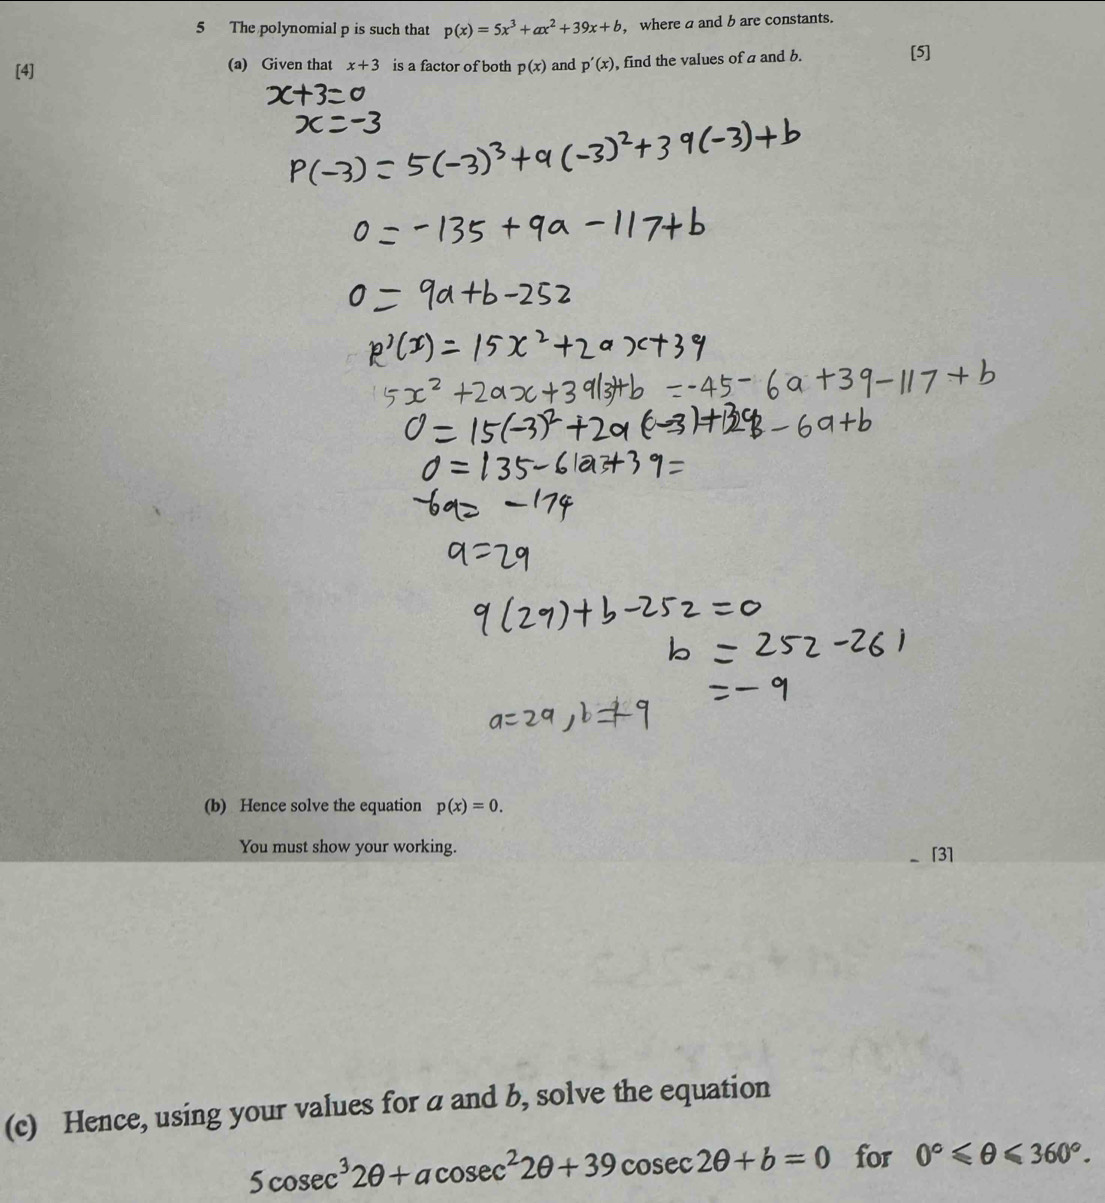 5 The polynomial p is such that p(x) = 5x³ + ax² + 39x + b, where a and b are constants.
[4]
(a) Given that x+3 is a factor of both p(x) and p′(x), find the values of a and b. [5]
x+3=0
x=-3
P(-3) = 5(-3)³+a(-3)²+39(-3)+b
0 = -135 + 9a - 117+b
0 = 9a+b-252
p'(x) = 15x²+2ax+39
5x² +2ax+39(3)+b = -45- 6a +39-117+b
0 = 15(-3)²+2a(-3)+39 - 6a+b
0 = 135-6a+39=
-6a= -174
a=29
9(29)+b-252 =0
b = 252-261
=-9
a=29, b=-9
(b) Hence solve the equation p(x) = 0.
You must show your working. [3]
(c) Hence, using your values for a and b, solve the equation
5 cosec³2θ + a cosec²2θ + 39 cosec 2θ + b = 0 for 0° ⩽ θ ⩽ 360°.